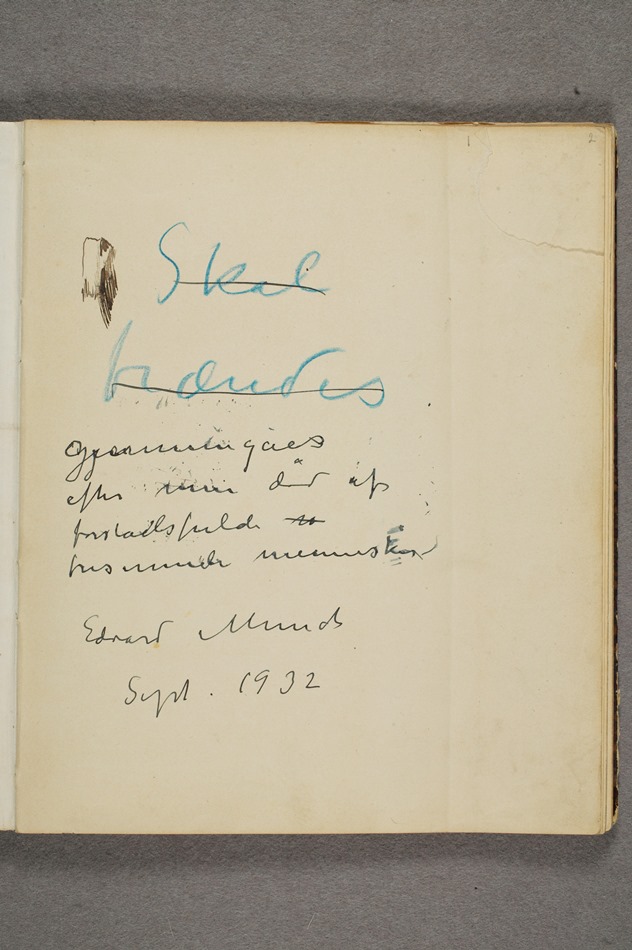 1 2
Skal
brændes
gjennemgåes
efter min død af
forstaelsfulde
frisinnede mennesker
Edvard Munch
Sept. 1932